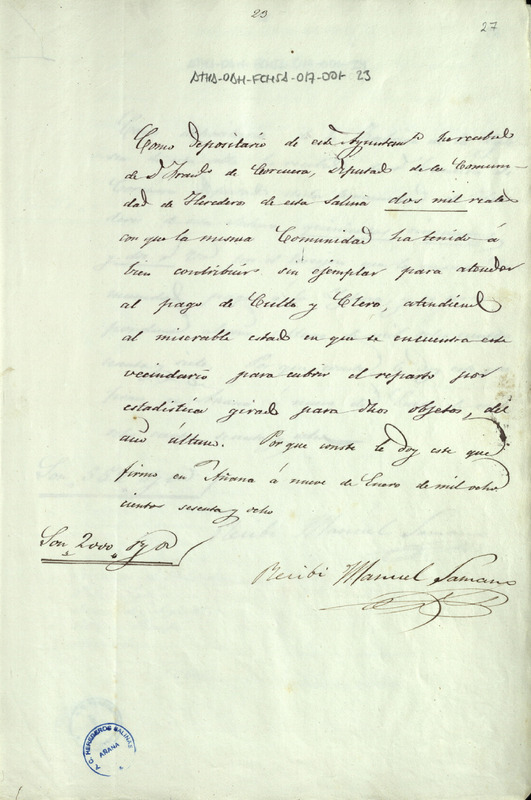 23
27
ATHA-DAH-FCMSA-017-001 23
Como depositario de este Ayuntam.to he recibido
de D. Fran.co de Corcuera, Diputado de la Comuni-
dad de Herederos de esta Salina dos mil reales
con que la misma Comunidad ha tenido á
bien contribuir sin ejemplar para atender
al pago de Culto y Clero, atendiendo
al miserable estado en que se encuentra este
vecindario para cubrir el reparto por
estadistica girado para dhos objetos, del
año último. Por que conste le doy este que
firmo en Añana á nueve de Enero de mil ocho
cientos sesenta y ocho
Son 2000 r.s v.n
Recibí Manuel Samano
HEREDEROS SALINAS
AÑANA